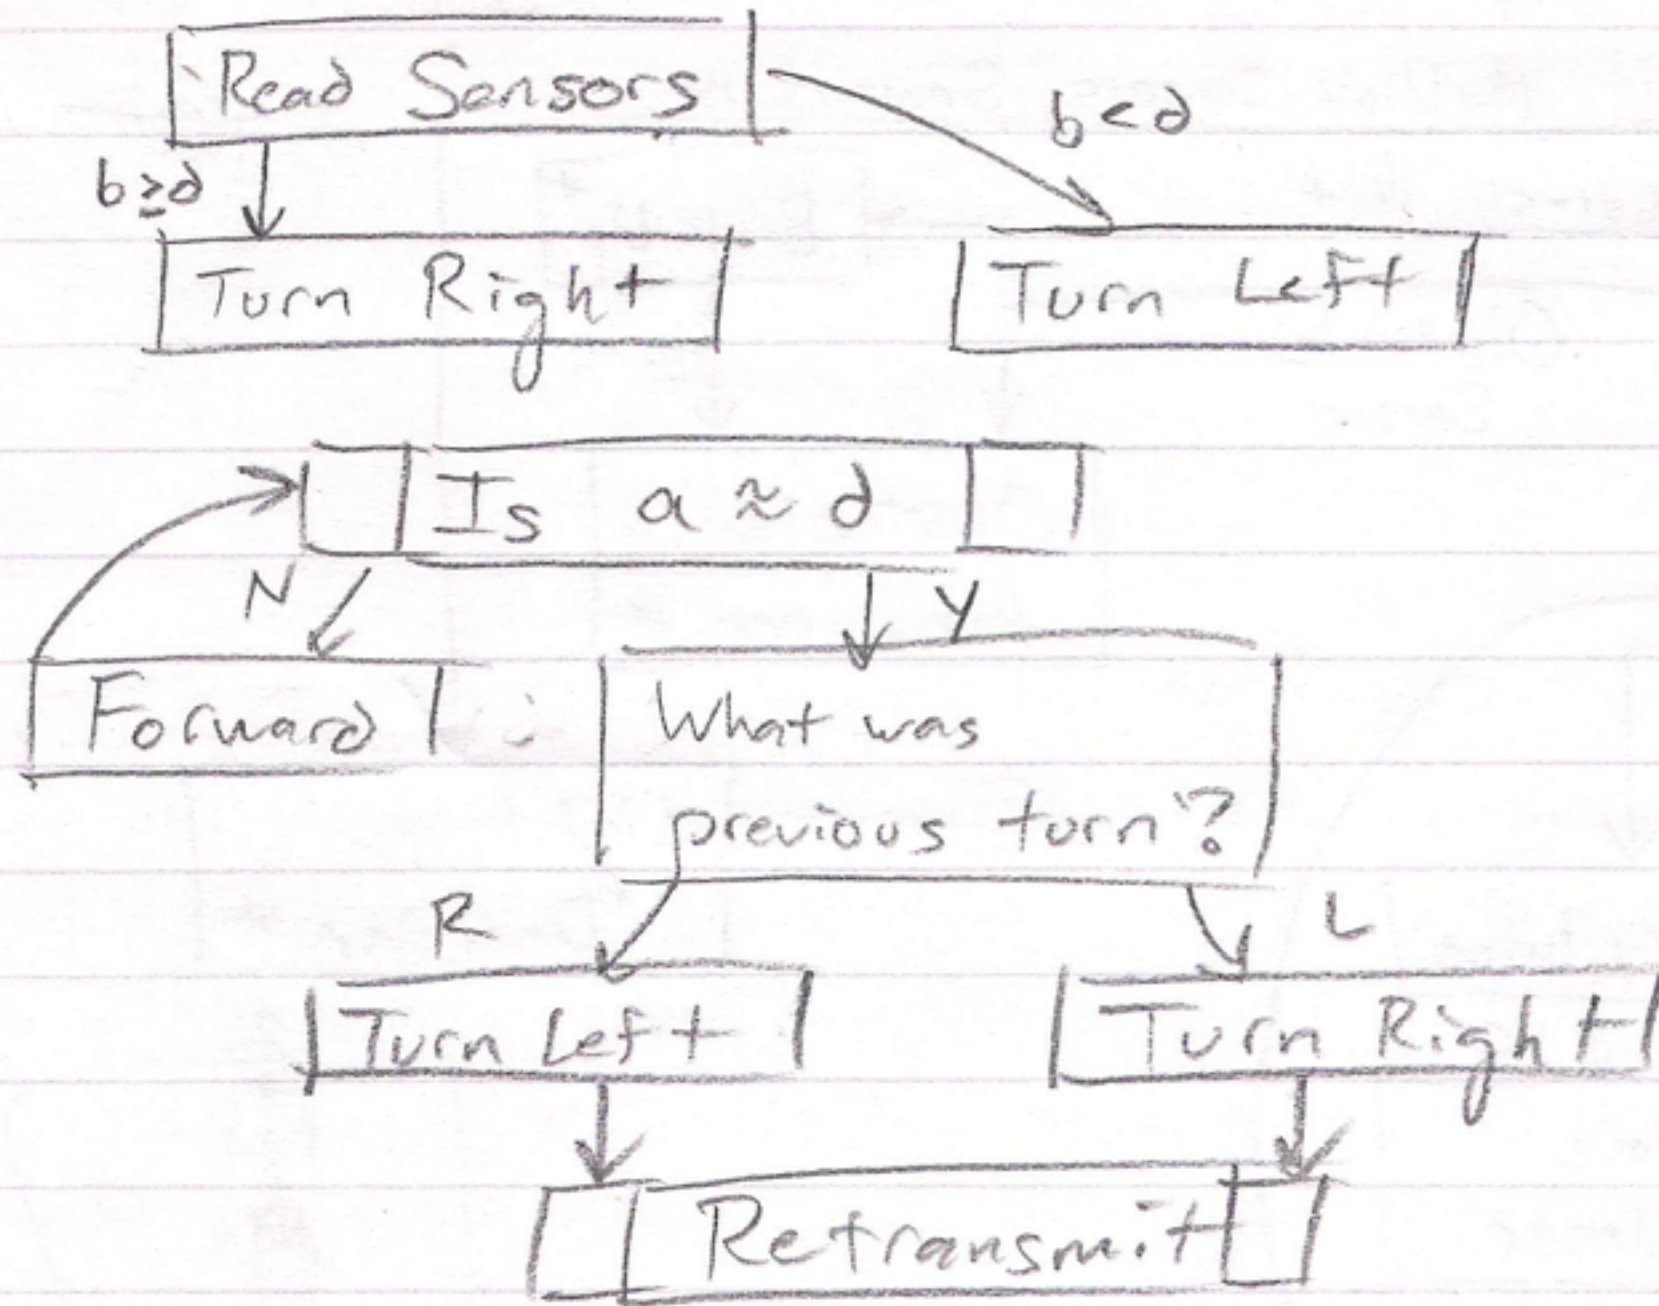 Read Sensors
b<d
b≥d
Turn Right
Turn Left
Is a ≈ d
N
Y
Forward
What was
previous turn?
R
L
Turn Left
Turn Right
Retransmit